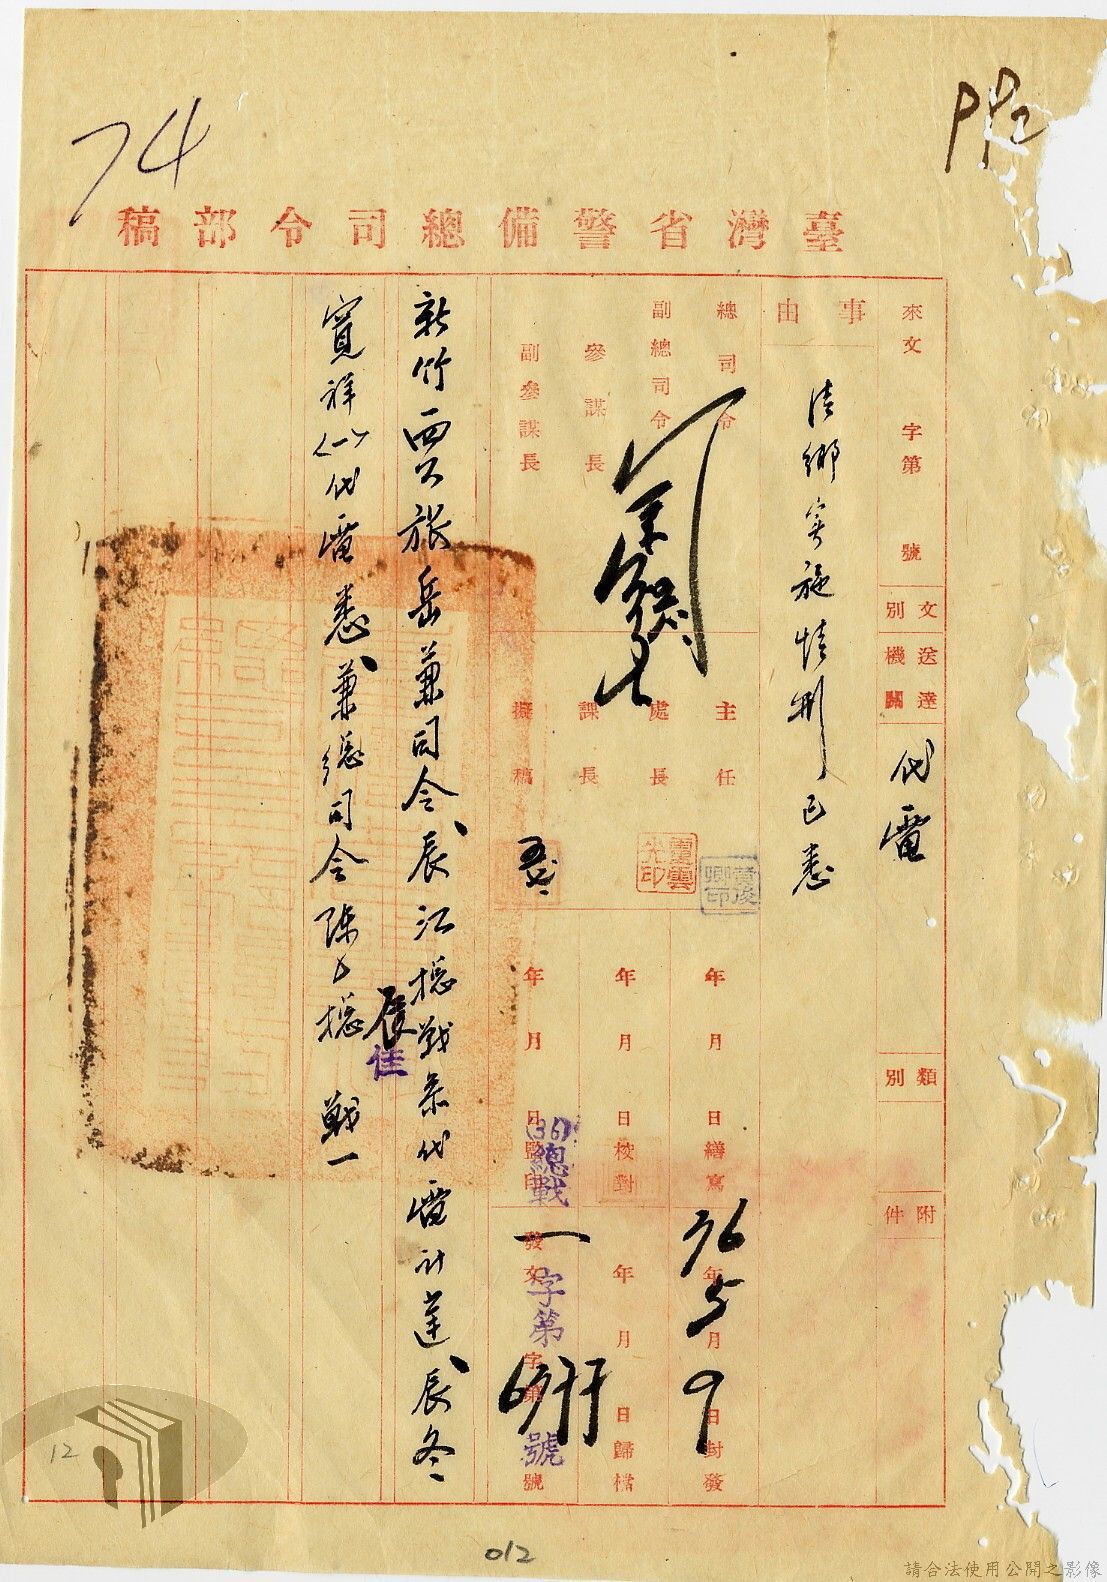 74
臺灣省警備總司令部稿
來文 字第 號
文別
代電
送達機關
類別
附件
事由
清鄉實施情形已悉
總司令
副總司令
參謀長
副參謀長
主任
處長
課長
擬稿
年月日繕寫
年月日校對
年月日監印
36年5月9日封發
年月日歸檔
發文 字第 號
(36)總戰一字第 號
新竹 岳兼司令、辰江總戰 代電計達、辰冬
寬祥〈一〉代電悉、兼總司令陳 總戰一
辰佳
12
012
請合法使用公開之影像